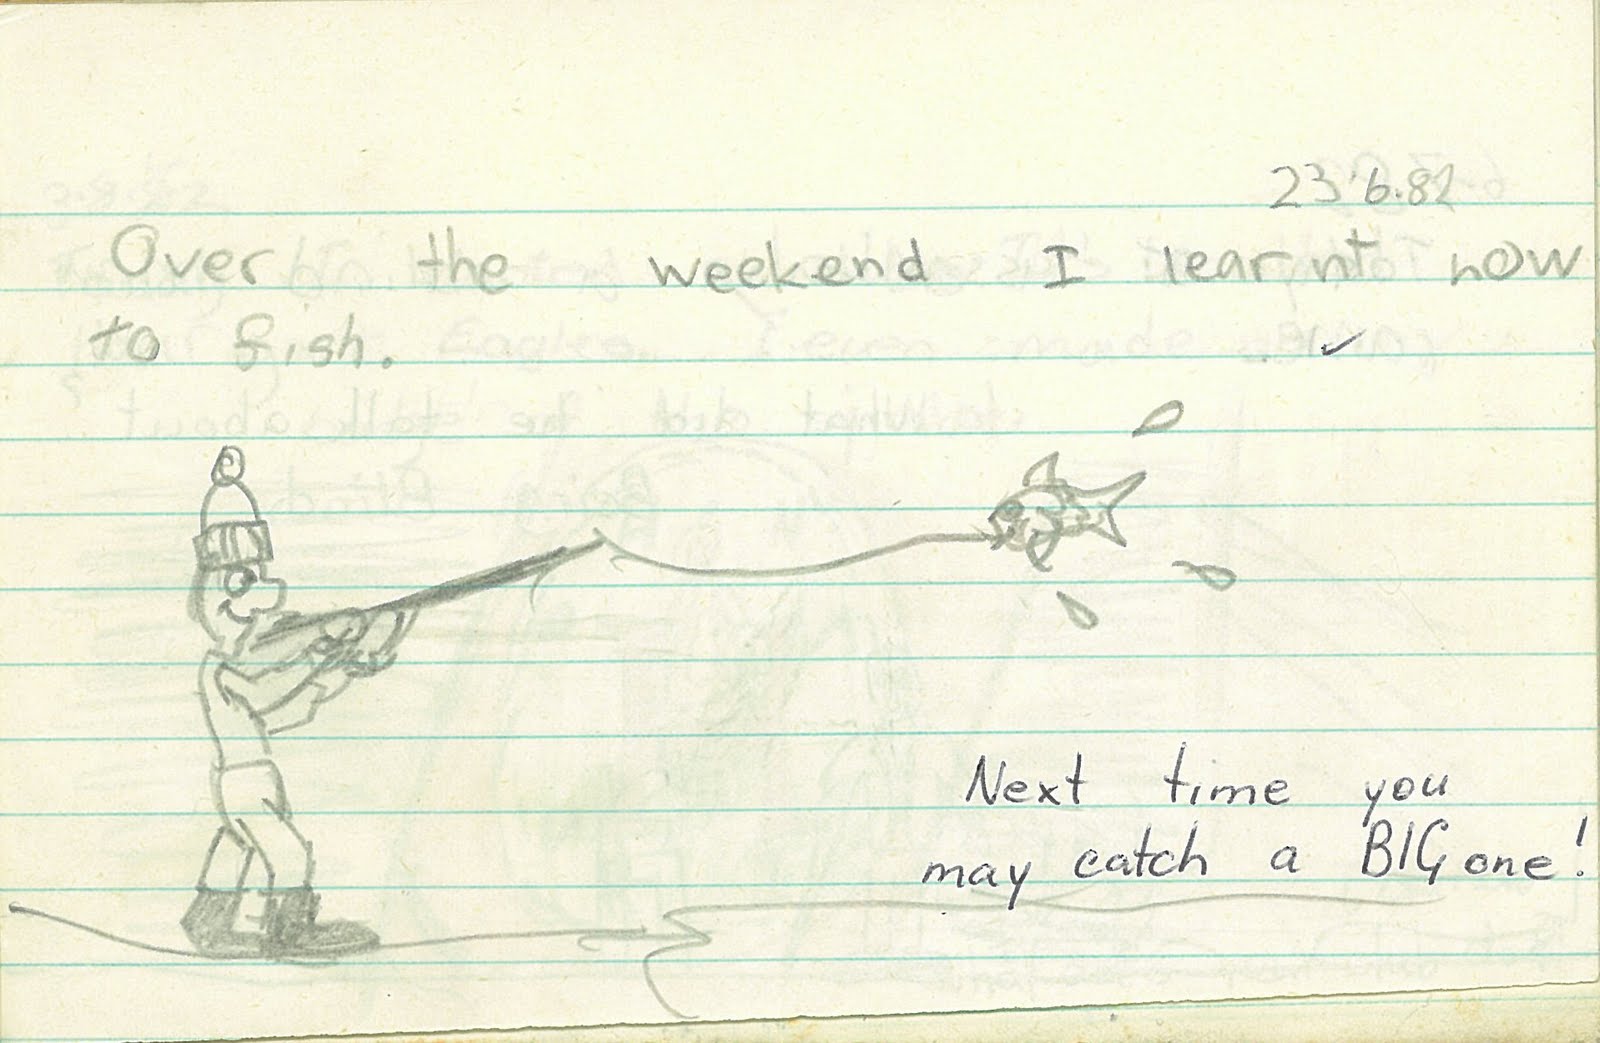 23.6.82
Over the weekend I learnt how
to fish.
Next time you
may catch a BIG one!